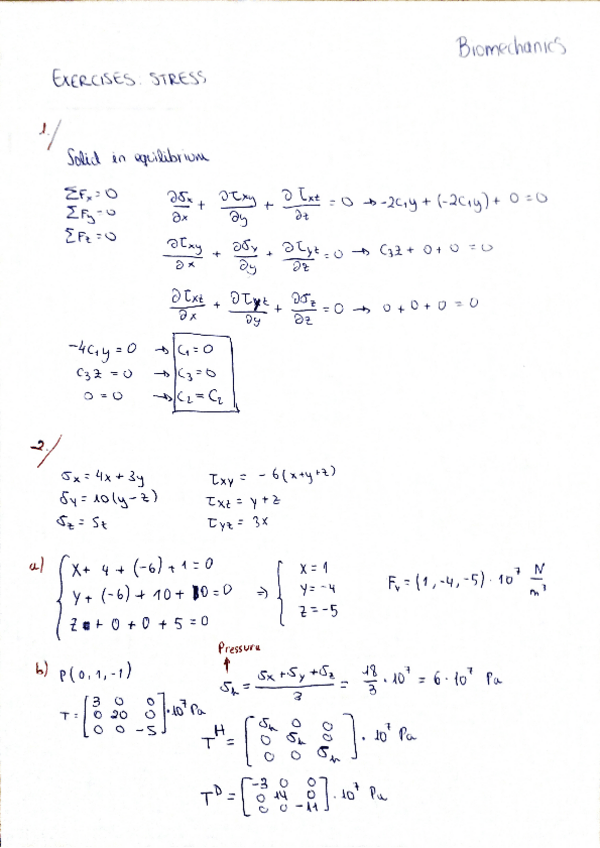 Biomechanics
EXERCISES. STRESS
1/
Solid in equilibrium
ΣFx = 0
ΣFy = 0
ΣFz = 0
∂σx/∂x + ∂τxy/∂y + ∂τxz/∂z = 0 → -2C₁y + (-2C₁y) + 0 = 0
∂τxy/∂x + ∂σy/∂y + ∂τyz/∂z = 0 → C₃z + 0 + 0 = 0
∂τxz/∂x + ∂τyz/∂y + ∂σz/∂z = 0 → 0 + 0 + 0 = 0
-4C₁y = 0 → C₁ = 0
C₃z = 0 → C₃ = 0
0 = 0 → C₂ = C₂
2./
σx = 4x + 3y    τxy = -6(x+y+z)
σy = 10(y-z)    τxz = y+z
σz = 5z    τyz = 3x
a) { X + 4 + (-6) + 1 = 0    { x = 1
Y + (-6) + 10 + 0 = 0 ⇒ y = -4    Fv = (1, -4, -5)·10⁷ N/m³
Z + 0 + 0 + 5 = 0    z = -5
Pressure
↑
b) P(0, 1, -1)    σh = (σx + σy + σz)/3 = 18/3 · 10⁷ = 6·10⁷ Pa
T = [3 0 0; 0 20 0; 0 0 -5]·10⁷ Pa
Tᴴ = [σh 0 0; 0 σh 0; 0 0 σh] · 10⁷ Pa
Tᴰ = [-3 0 0; 0 14 0; 0 0 -11]·10⁷ Pa